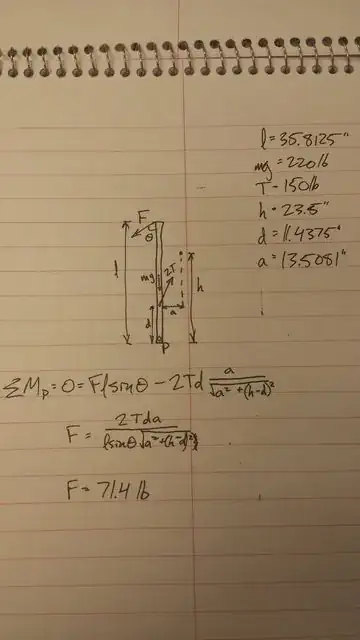 l = 35.8125"
mg = 220 lb
T = 150 lb
h = 23.5"
d = 11.4375"
a = 13.5081"
F
θ
l
mg
2T
h
d
a
P
ΣMp = 0 = Flsinθ - 2Td a/√(a² + (h-d)²)
F = 2Tda/(lsinθ√(a² + (h-d)²))
F = 71.4 lb